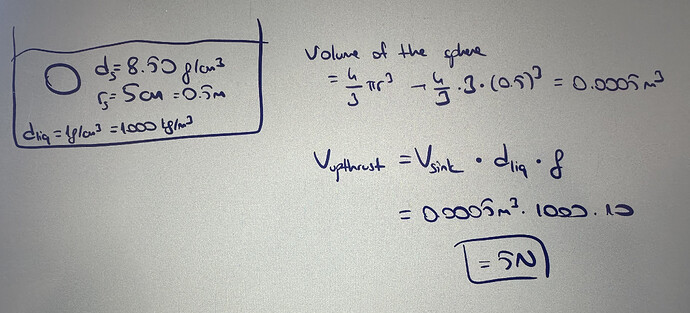 d_s = 8.50 g/cm³
r_s = 5cm = 0.5m
d_liq = 1g/cm³ = 1000 kg/m³
Volume of the sphere
= 4/3 πr³ → 4/3 · 3 · (0.5)³ = 0.0005m³
V_upthrust = V_sink · d_liq · g
= 0.0005m³ · 1000 · 10
= 5N